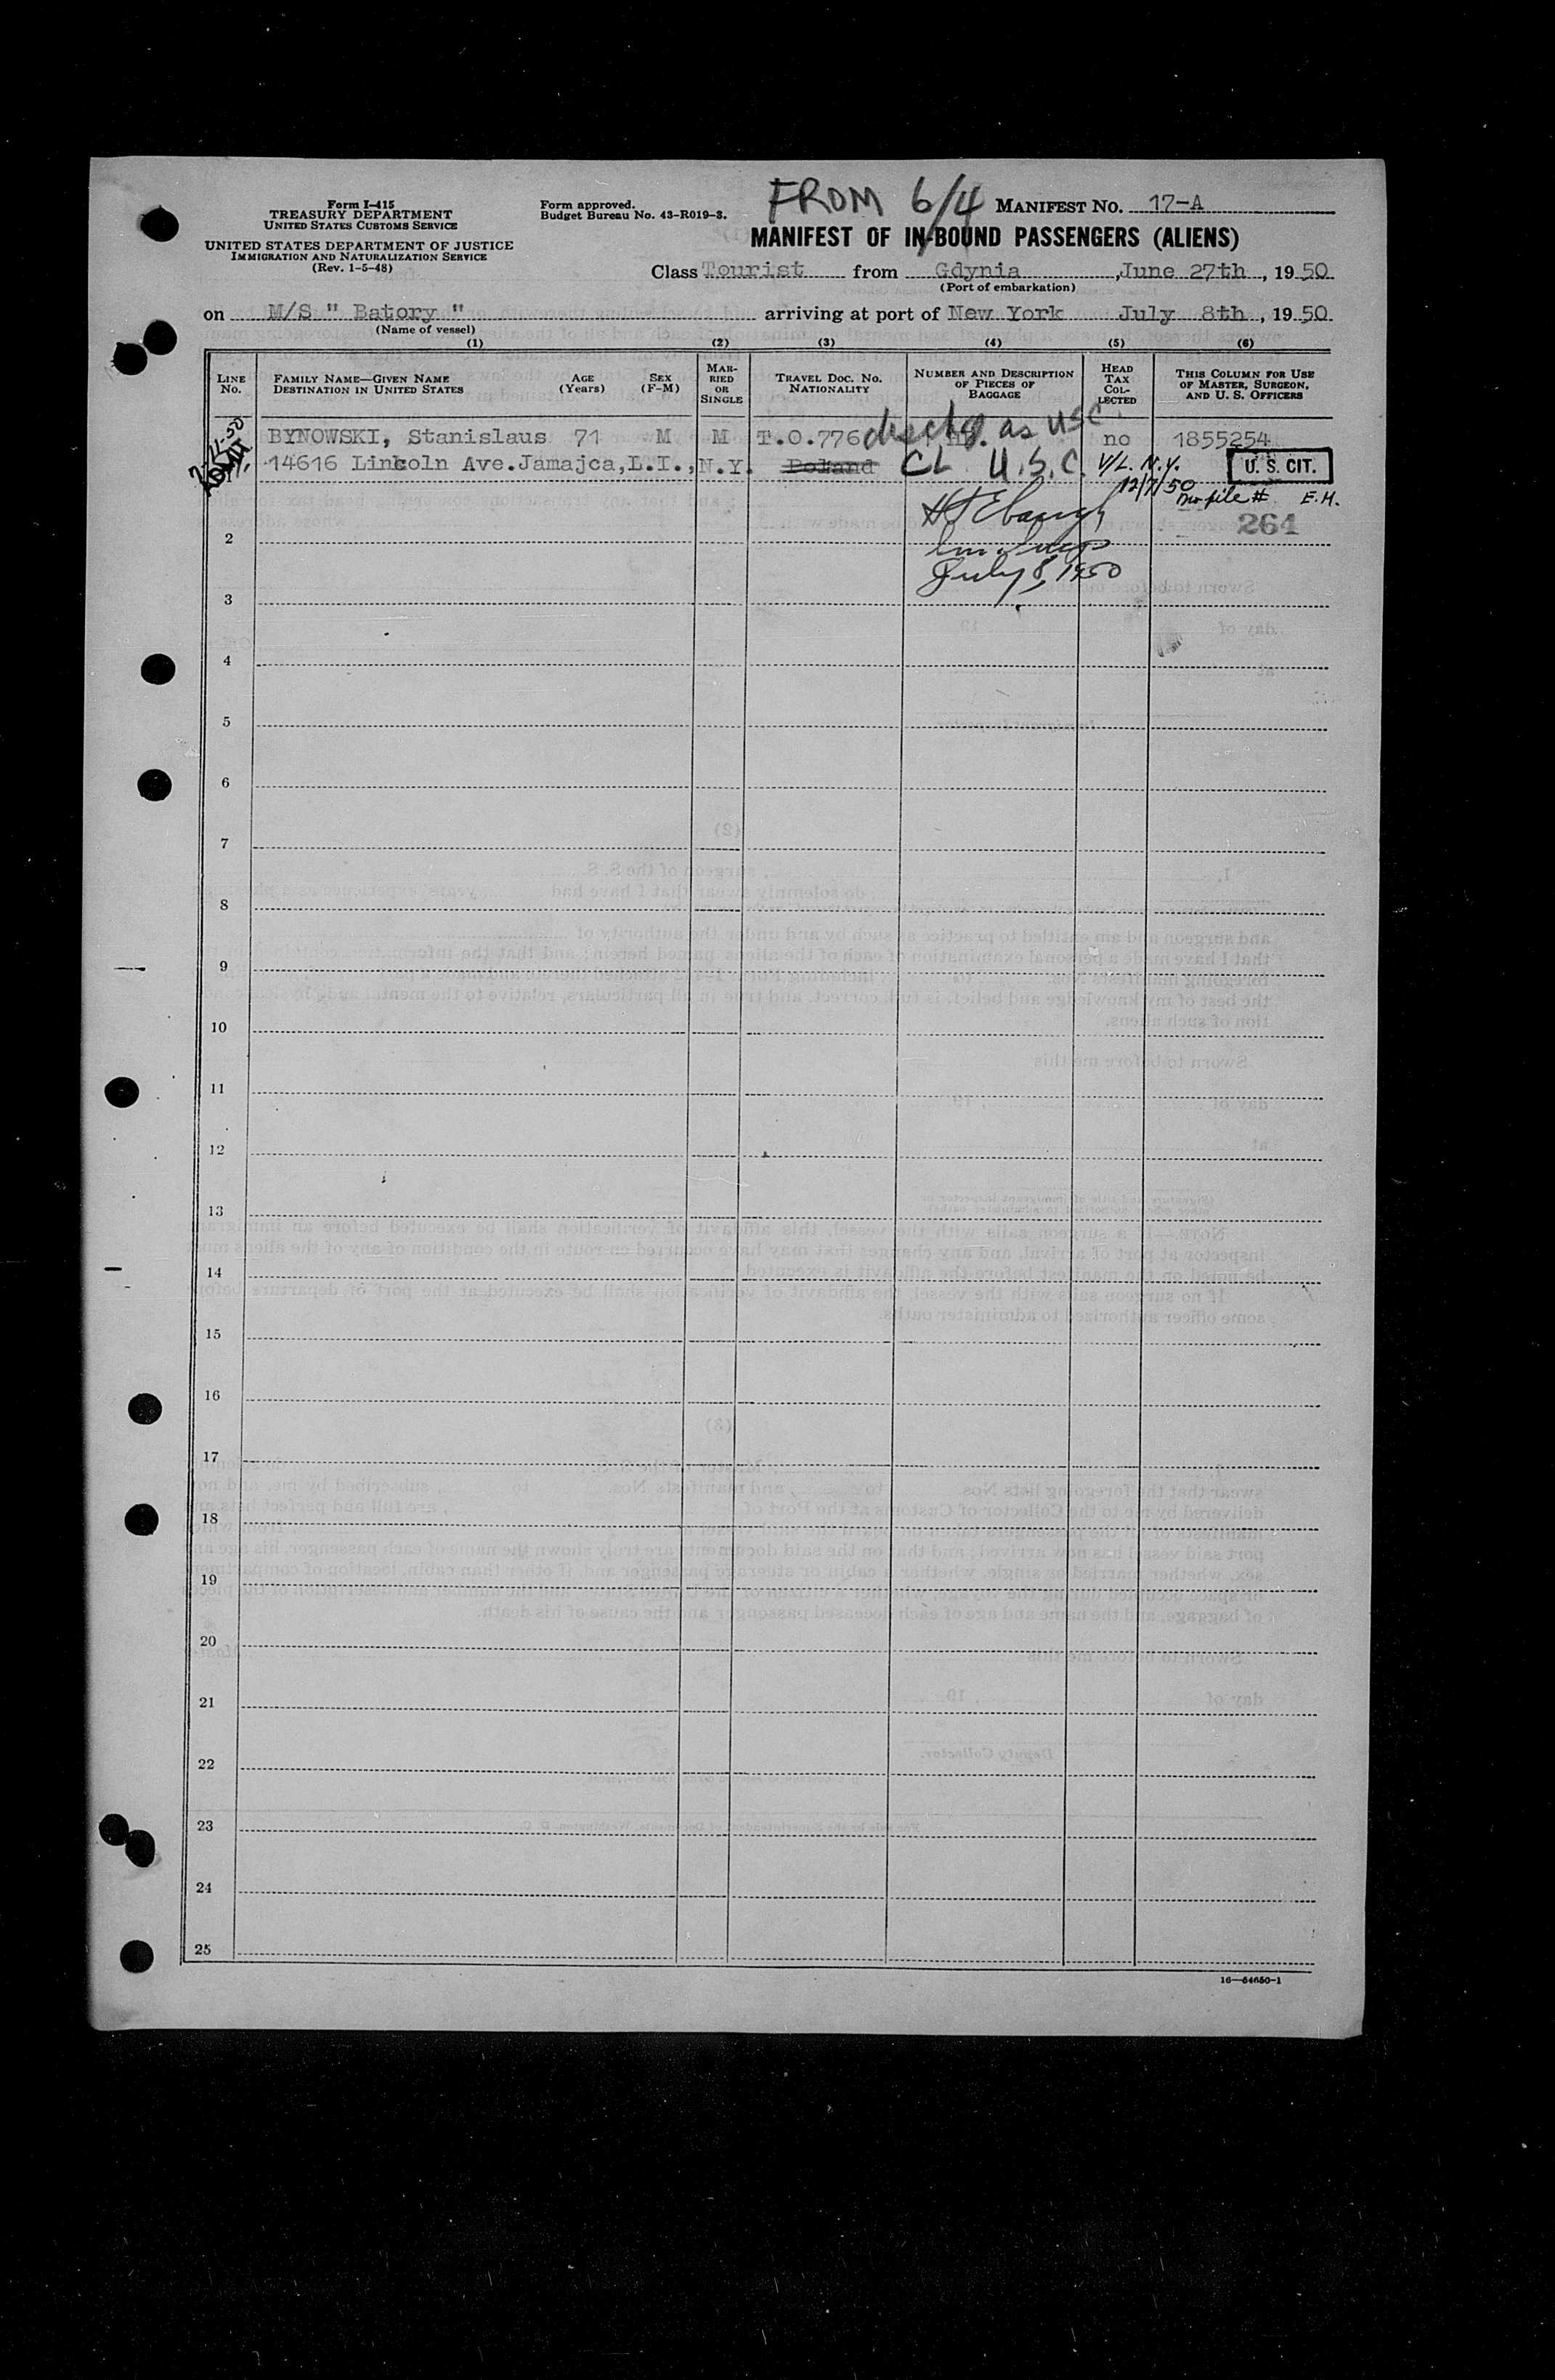 FROM 6/4 MANIFEST NO. 17-A
Form I-415
TREASURY DEPARTMENT
UNITED STATES CUSTOMS SERVICE
UNITED STATES DEPARTMENT OF JUSTICE
IMMIGRATION AND NATURALIZATION SERVICE
(Rev. 1-5-48)
Form approved.
Budget Bureau No. 43-R019-3.
MANIFEST OF IN-BOUND PASSENGERS (ALIENS)
Class Tourist from Gdynia, June 27th, 1950
(Port of embarkation)
on M/S " Batory " arriving at port of New York July 8th, 1950
(Name of vessel)
(1) (2) (3) (4) (5) (6)
LINE NO.
FAMILY NAME—GIVEN NAME
DESTINATION IN UNITED STATES
AGE
(Years)
SEX
(F-M)
MARRIED OR SINGLE
TRAVEL DOC. NO.
NATIONALITY
NUMBER AND DESCRIPTION
OF PIECES OF
BAGGAGE
HEAD TAX COLLECTED
THIS COLUMN FOR USE
OF MASTER, SURGEON,
AND U. S. OFFICERS
BYNOWSKI, Stanislaus 71 M M T.O.776 as USC no 1855254
14616 Lincoln Ave.Jamajca,L.I., N.Y. Poland CL U.S.C. V/L. N.Y. U. S. CIT.
12/7/50 no file # E.H.
264
July 8, 1950
2
3
4
5
6
7
8
9
10
11
12
13
14
15
16
17
18
19
20
21
22
23
24
25
16—54650-1